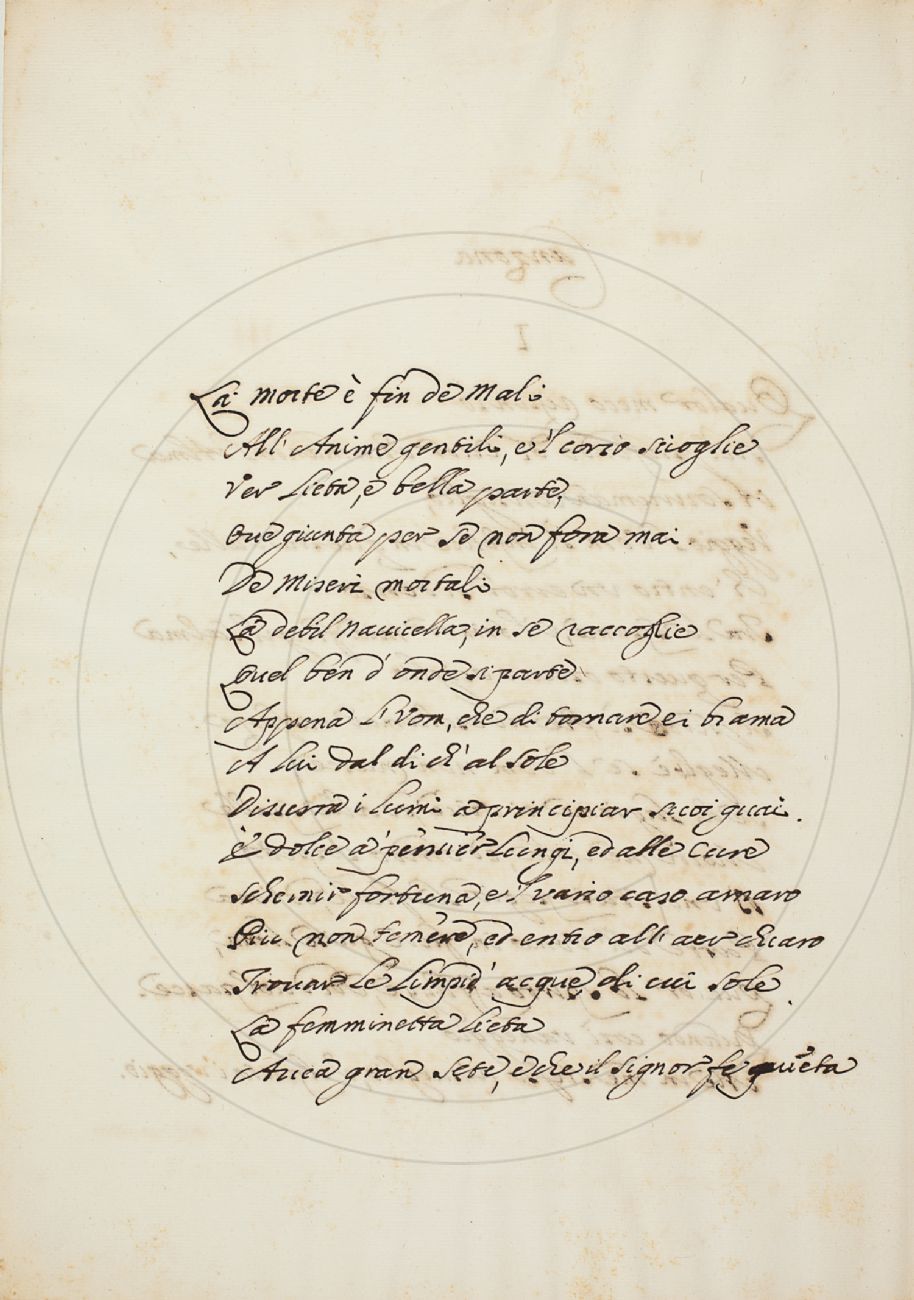 La morte è fin de mali
All' Anime gentili, e 'l corso scioglie
Ver lieta, e bella parte,
Ove giunta per se non fora mai.
De Miseri mortali
La debil Navicella, in se raccoglie
Quel ben d' onde si parte
Appena l' Vom, che di tornare ei brama
A lui dal di ch' al sole
Disserra i lumi a principiar suoi guai.
È dolce a' pensier lungi, ed alle cure
Schernir fortuna, e 'l vario caso amaro
Più non temere, ed entro all' aer chiaro
Trovar le limpid' acque, di cui sole
La femminetta lieta
Avea gran sete, e che il Signor fe queta
Canzona
I